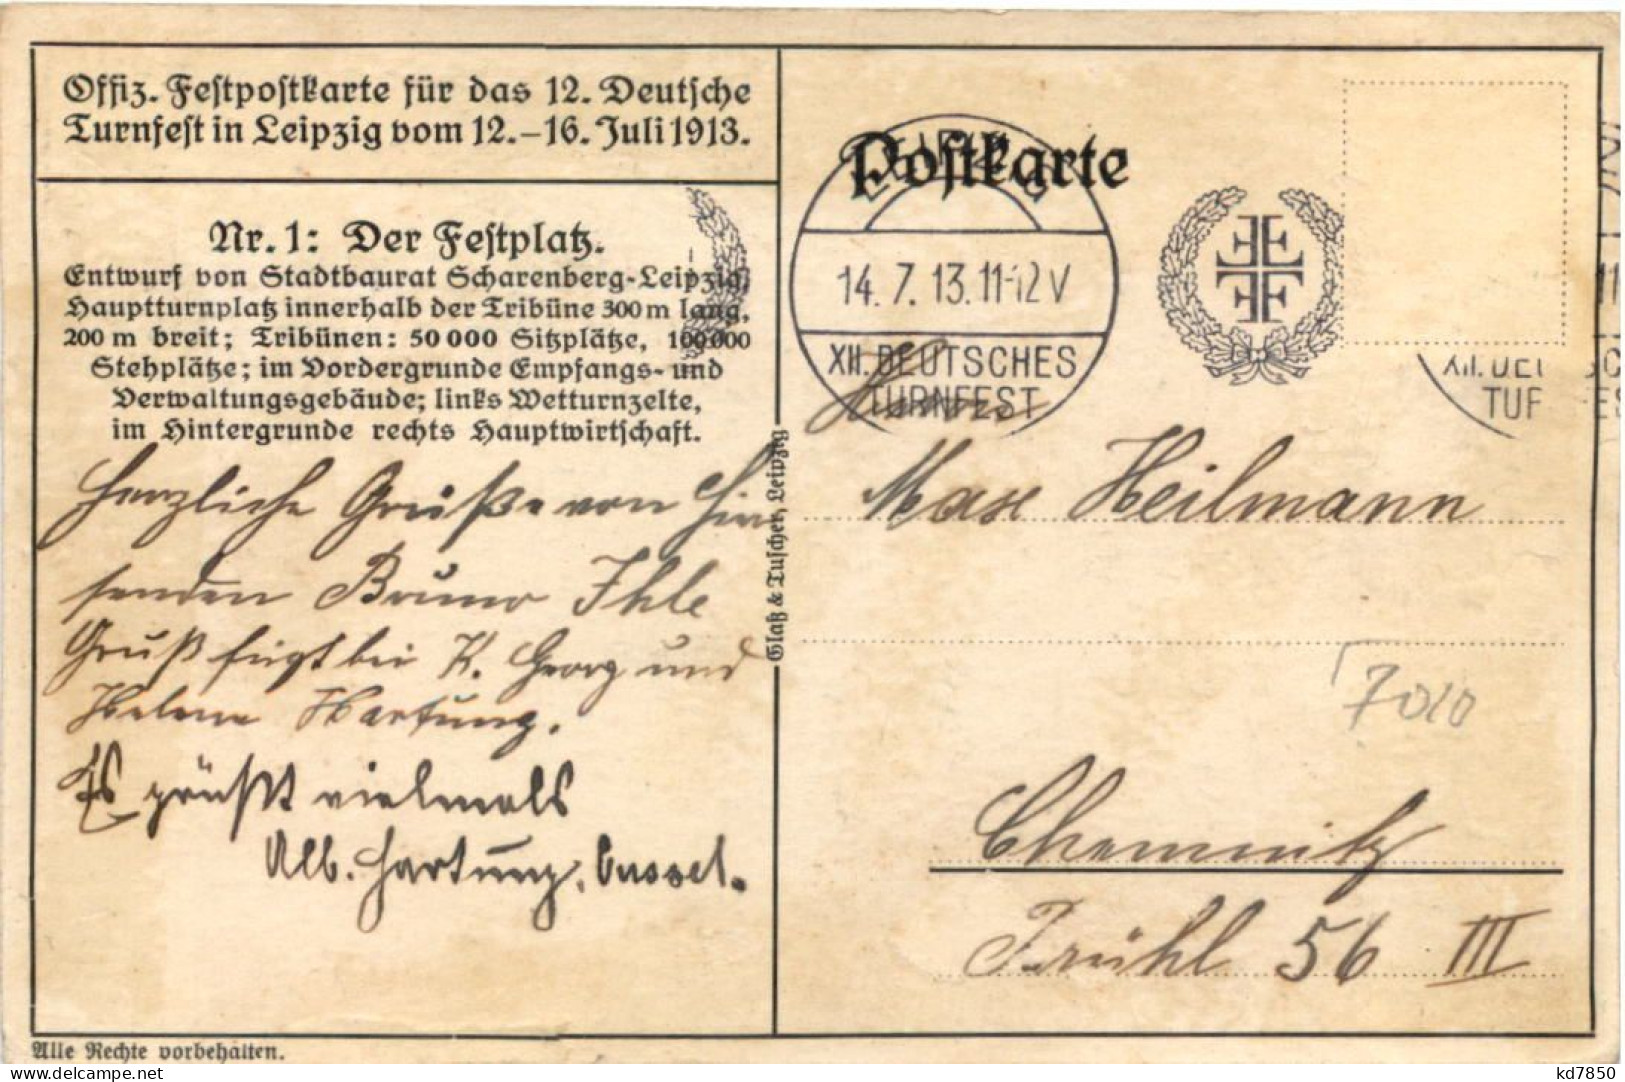 Offiz. Festpostkarte für das 12. Deutsche
Turnfest in Leipzig vom 12.–16. Juli 1913.
Nr. 1: Der Festplatz.
Entwurf von Stadtbaurat Scharenberg-Leipzig,
Hauptturnplatz innerhalb der Tribüne 300 m lang,
200 m breit; Tribünen: 50 000 Sitzplätze, 100 000
Stehplätze; im Vordergrunde Empfangs- und
Verwaltungsgebäude; links Wetturnzelte,
im Hintergrunde rechts Hauptwirtschaft.
Herzliche Grüße von hier
senden Bruno Ihle
Gruß fügt bei K. Georg und
Helene Hartung.
Es grüßt vielmals
Alb. Hartung, Cassel.
Alle Rechte vorbehalten.
Glaß & Tuscher, Leipzig
Postkarte
LEIPZIG
14.7.13.11-12 V
XII. DEUTSCHES
TURNFEST
XII. DEUTSC
TUR FES
Herrn
Max Heilmann
7010
Chemnitz
Brühl 56 III
kd7850